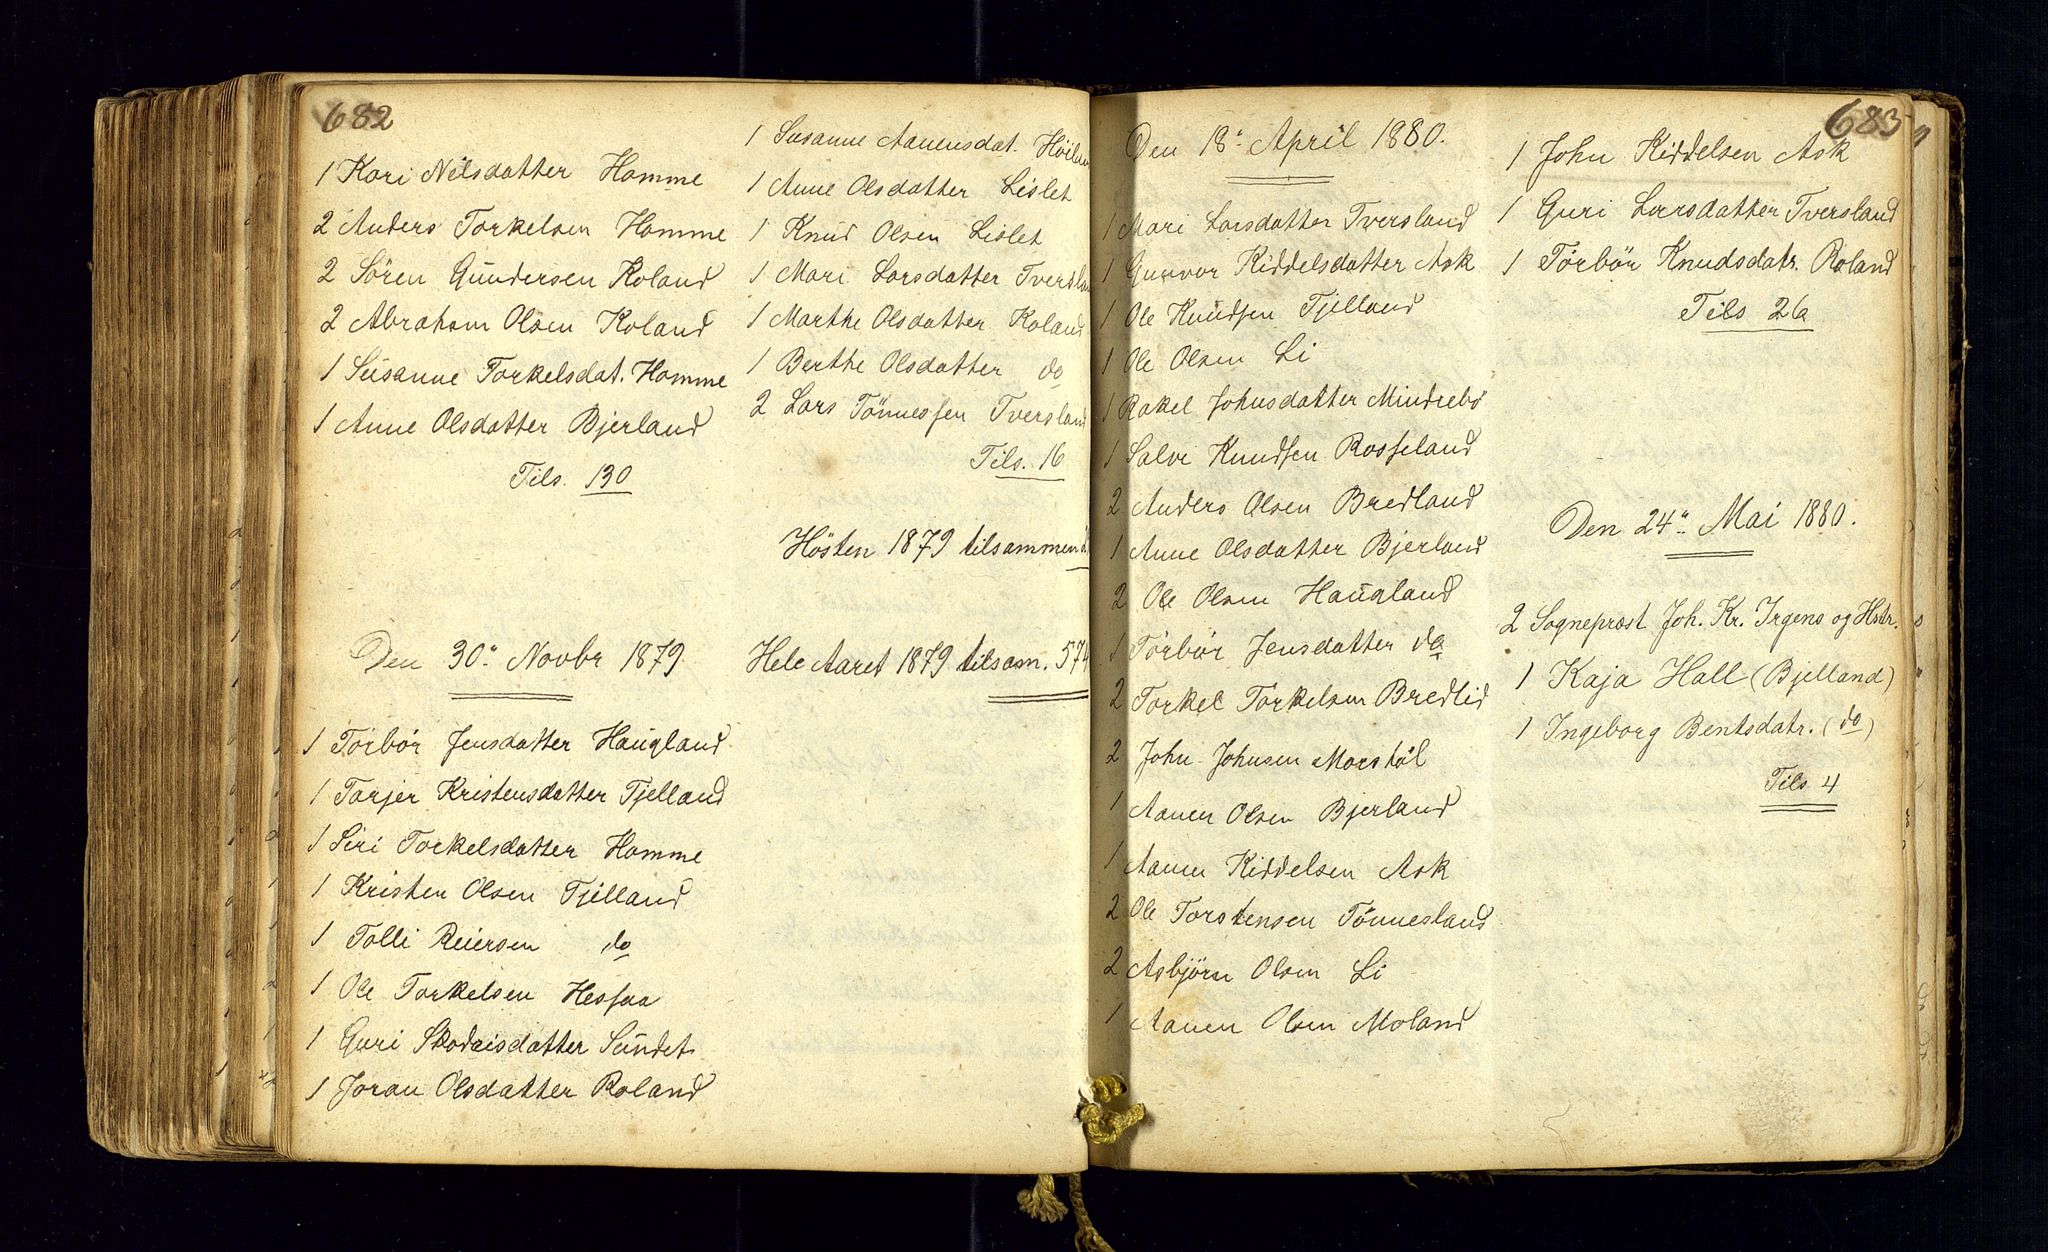 682
1 Kari Nilsdatter Homme
2 Anders Torkelsen Homme
2 Sören Gundersen Roland
2 Abraham Olsen Roland
1 Susanne Torkelsdat. Homme
1 Anne Olsdatter Bjerland
Tils. 130
Den 30" Novbr 1879
1 Törbör Jensdatter Haugland
1 Tarjer Kristensdatter Tjelland
1 Siri Torkelsdatter Homme
1 Kristen Olsen Tjelland
1 Tolli Reiersen do
1 Ole Torkelsen Hessaa
1 Guri Skodvisdatter Sundet
1 Joran Olsdatter Roland
1 Susanne Aanensdat.
1 Anne Olsdatter Lislet
1 Knud Olsen Lislet
1 Mari Larsdatter
1 Marthe Olsdatter Roland
1 Berthe Olsdatter do
2 Lars Tönnessen Tversland
Tils. 16
Hösten 1879 tilsammen
Hele Aaret 1879 tilsam. 574
683
Den 18" April 1880.
1 Mari Larsdatter Tversland
1 Gunvor Kiddelsdatter Ask
1 Ole Knudsen Tjelland
1 Ole Olsen Li
1 Rakel Johnsdatter Mindrebö
1 Salve Knudsen Rosseland
2 Anders Olsen Bredland
1 Anne Olsdatter Bjerland
2 Ole Olsen Haugland
1 Törbör Jensdatter do
2 Torkel Torkelsen Bredlid
2 John Johnsen
1 Aanen Olsen Bjerland
1 Aanen Kiddelsen Ask
2 Ole Torstensen Tönnesland
2 Asbjörn Olsen Li
1 Aanen Olsen Moland
1 John Kiddelsen Ask
1 Guri Larsdatter Tversland
1 Törbör Knudsdatr. Roland
Tils 26
Den 24" Mai 1880.
2 Sogneprost Joh. Kr. Irgens og Hstr.
1 Kaja Hall (Bjelland)
1 Ingeborg Bentsdatr. (do)
Tils 4